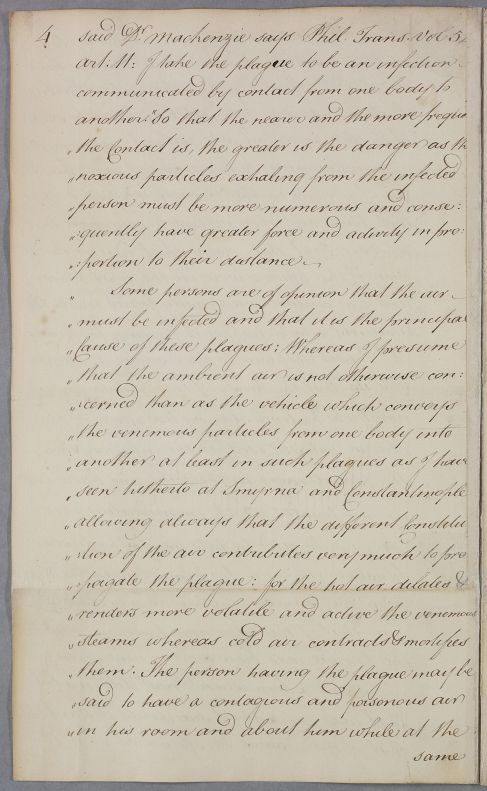 4 said Dr Mackenzie says Phil. Trans. Vol 5
art. 11: I take the plague to be an infection
communicated by contact from one body to
another "So that the nearer and the more frequ
„the Contact is, the greater is the danger as th
„noxious particles exhaling from the infected
„person must be more numerous and conse:
„:quently have greater force and activity in pro:
„:portion to their distance.
„ Some persons are of opinion that the air
„must be infected and that it is the principal
„Cause of these plagues; Whereas I presume
„that the ambient air is not otherwise con:
„:cerned than as the vehicle which conveys
„the venimous particles from one body into
„another at least in such plagues as I have
„seen hitherto at Smyrna and Constantinople
„allowing always that the different Constitu
„:tion of the air contributes very much to pro
„:pagate the plague: for the hot air dilates &
„renders more volatile and active the venemous
„steams whereas cold air contracts & mortifies
„them. The person having the plague may be
„said to have a contagious and poisonous air
„in his room and about him while at the
same